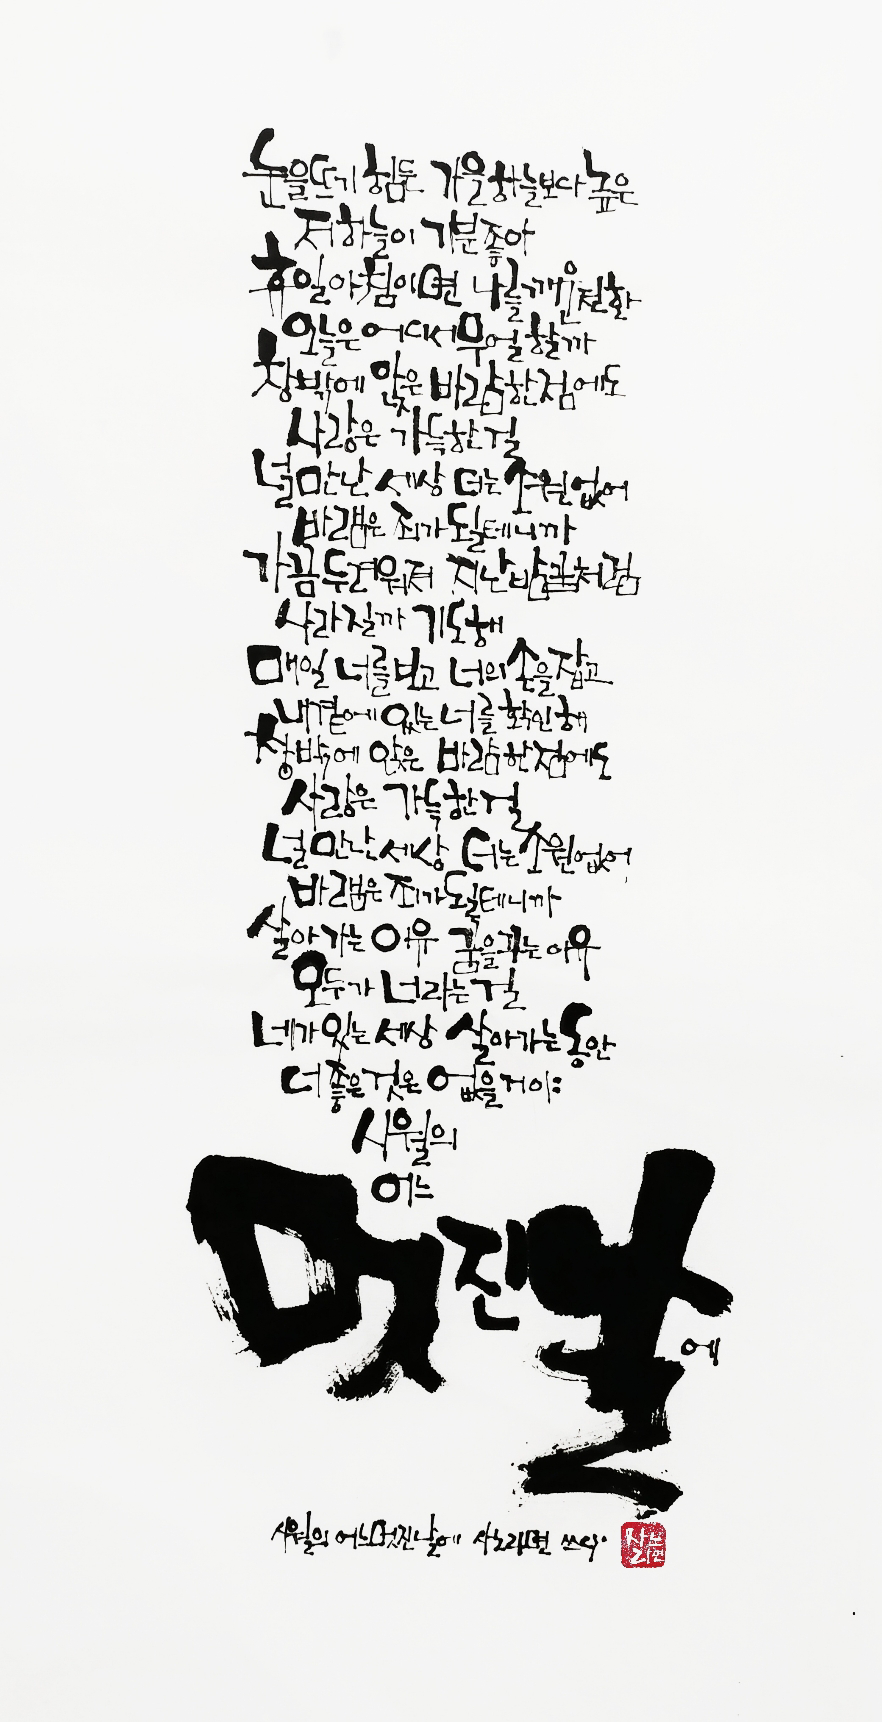 눈을뜨기 힘든 가을하늘보다 높은
저하늘이 기분좋아
휴일아침이면 나를깨운전화
오늘은 어디서무얼할까
창밖에 앉은 바람한점에도
사랑은 가득한걸
널만난 세상 더는 소원없어
바램은 죄가될테니까
가끔두려워져 지난밤꿈처럼
사라질까 기도해
매일 너를보고 너의손을잡고
내곁에있는너를 확인해
창밖에 앉은 바람한점에도
사랑은 가득한걸
널만난세상 더는소원없어
바램은 죄가될테니까
살아가는이유 꿈을꾸는이유
모두가 너라는걸
네가있는세상 살아가는동안
더좋은것은 없을거야:
시월의
어느
멋진날에
시월의 어느멋진날에 사노라면 쓰다.
사노라면